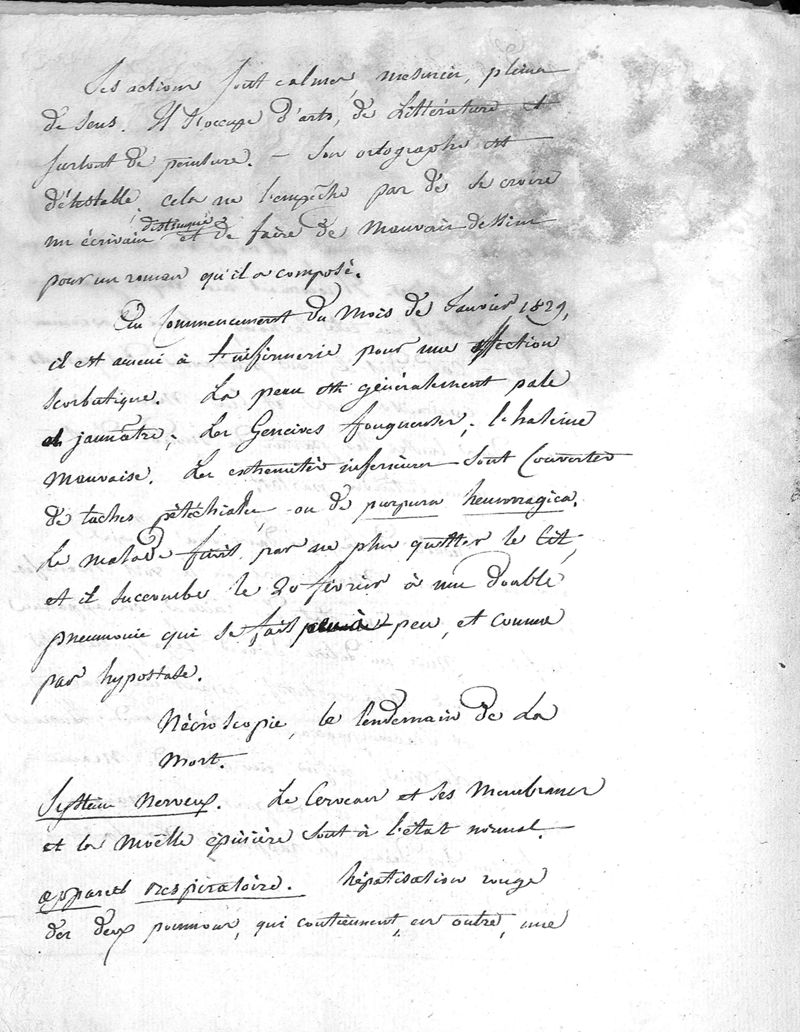 Ses actions sont calmes, mesurées, pleines
de sens. Il s'occupe d'arts, de Littérature et
surtout de peinture. — Son ortographe est
détestable, cela ne l'empêche pas de se croire
un écrivain distingué et de faire de mauvais dessins
pour un roman qu'il a composé.
Au Commencement du Mois de Janvier 1829,
il est amené à l'infirmerie pour une affection
scorbutique. La peau est généralement pale
et jaunâtre; Les Gencives fongueuses; l'haleine
mauvaise. Les extremités inferieures sont Couvertes
de taches pétéchiales, ou de purpura hemorragica.
Le malade finit par ne plus quitter le lit,
et il succombe le 20 février à une double
pneumonie qui se fait peu, et comme
par hypostase.
Nécroscopie, le lendemain de La
Mort.
Systême Nerveux. Le Cerveau et ses Membranes
et la Moëlle épinière sont à l'état normal.
appareil respiratoire. hépatisation rouge
des deux poumons, qui contiennent, en outre, une